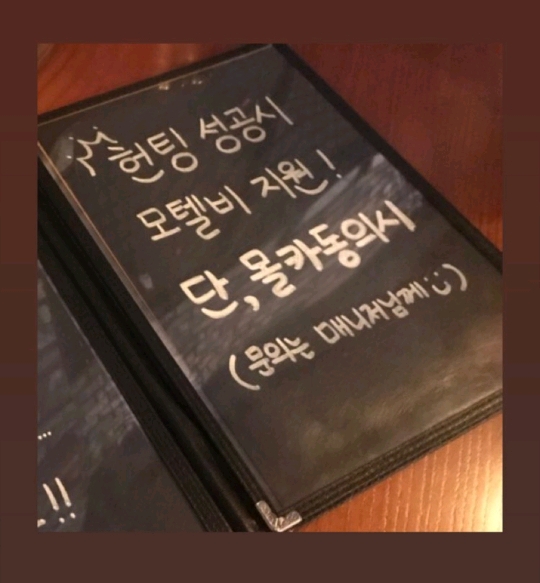 헌팅 성공시
모텔비 지원!
단, 몰카동의시
(문의는 매니저님께:)
...
!!